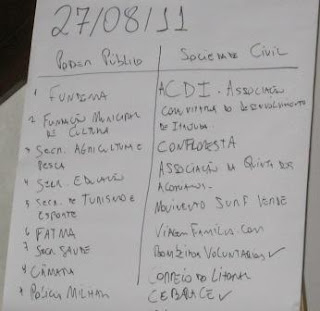 27/08/11
Poder Público
Sociedade Civil
1 FUNDEMA
2 Fundação Municipal
de Cultura
3 Secr. Agricultura e
Pesca
4 Secr. Educação
5 Secr. de Turismo e
Esporte
6 FATMA
7 Secr Saúde
8 Câmara
9 Polícia Militar
ACDI - Associação
do Desenvolvimento
de Itajuba
CONFLORESTA
Associação da Quinta dos
Açorianos
Movimento Surf Verde
Viagem Família com
Bombeiros Voluntários ✓
Correio do Litoral
CEBARACE ✓